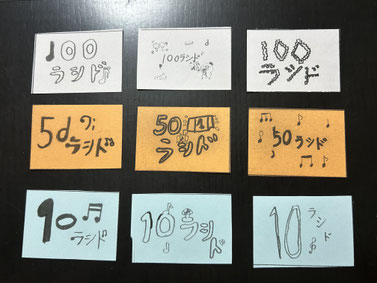 100
ラシド
100ラシド
100
ラシド
50
ラシド
50
ラシド
50ラシド
10
ラシド
10
ラシド
10
ラシド